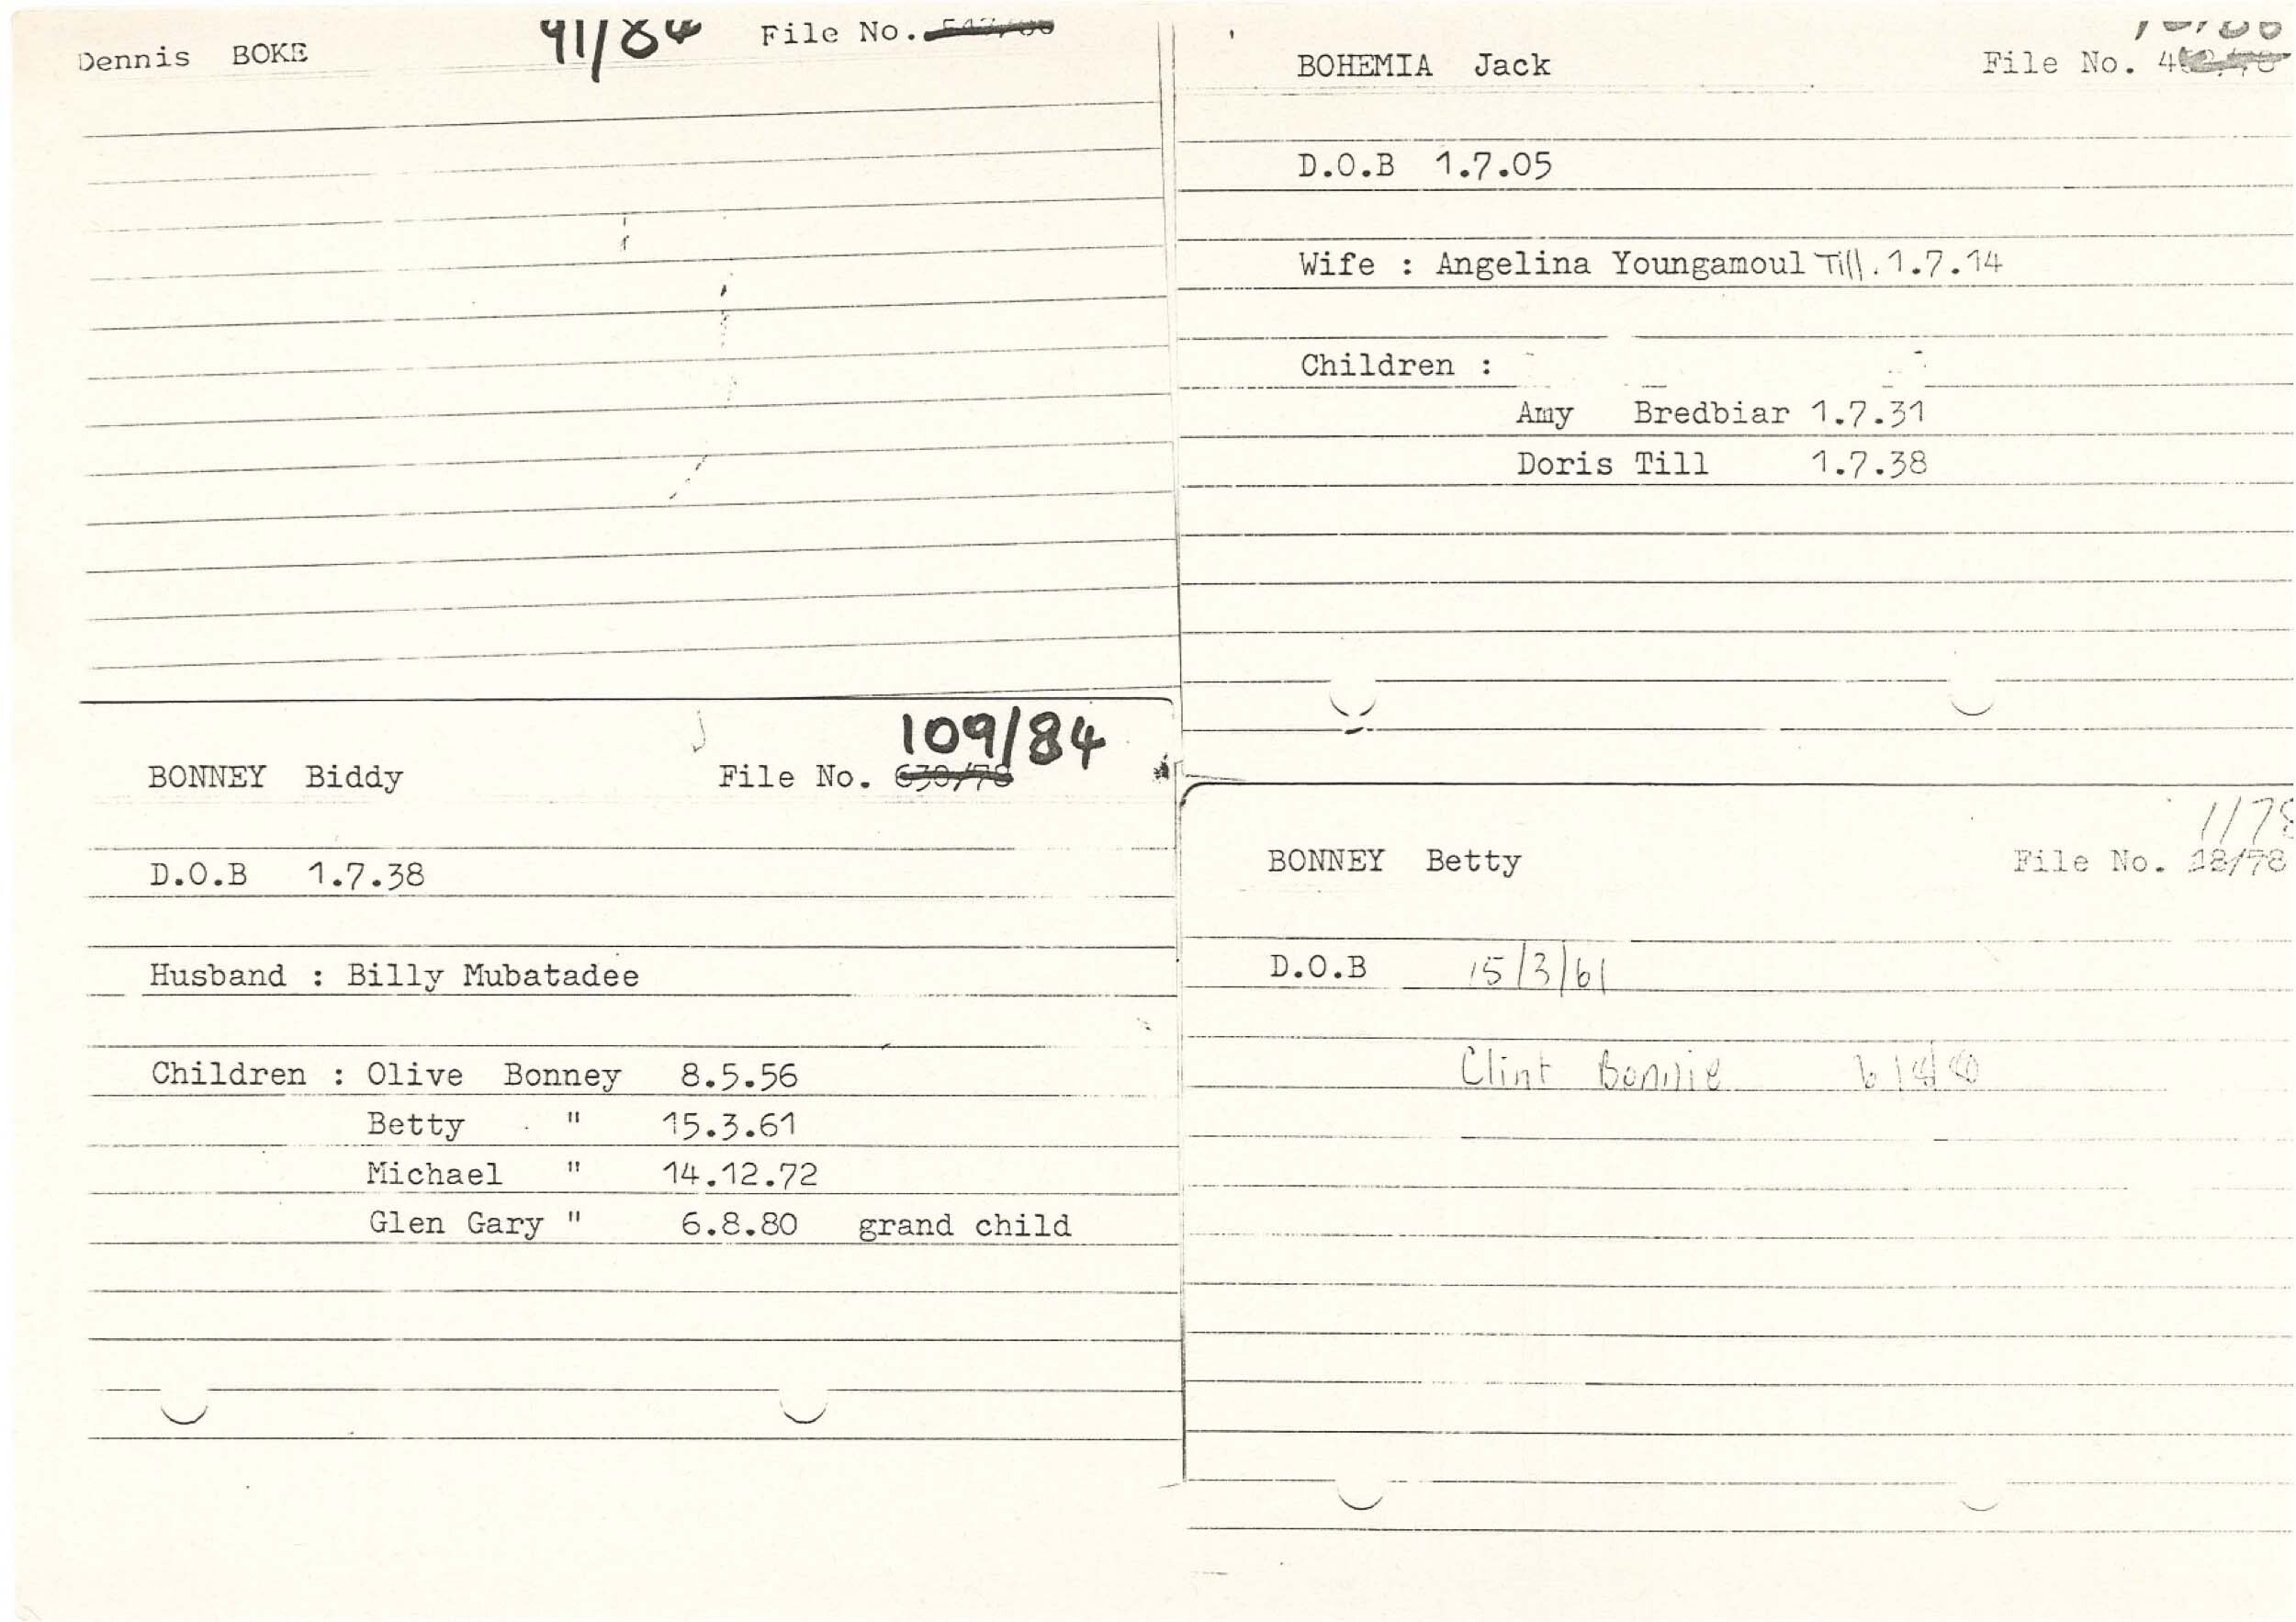 Dennis BOKE 41/84 File No.
BOHEMIA Jack File No.
D.O.B 1.7.05
Wife : Angelina Youngamoul Till. 1.7.14
Children :
Amy Bredbiar 1.7.31
Doris Till 1.7.38
109/84
BONNEY Biddy File No. 630/78
D.O.B 1.7.38
Husband : Billy Mubatadee
Children : Olive Bonney 8.5.56
Betty " 15.3.61
Michael " 14.12.72
Glen Gary " 6.8.80 grand child
BONNEY Betty File No. 18/78
D.O.B 15/3/61
Clint Bonnie